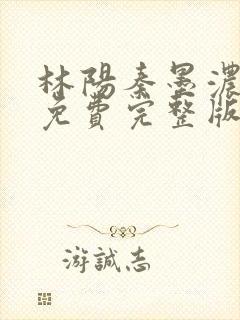 林陽秦墨濃
免費完整版
游誠志